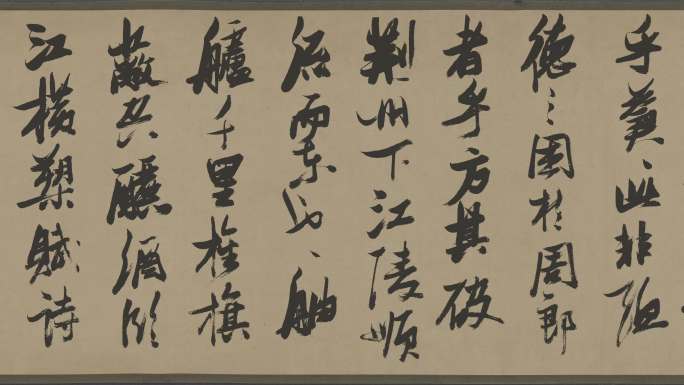 乎蒼〻此非孟
德之困於周郎
者乎方其破
荊州下江陵順
流而東也舳
艫千里旌旗
蔽空釃酒臨
江橫槊賦詩